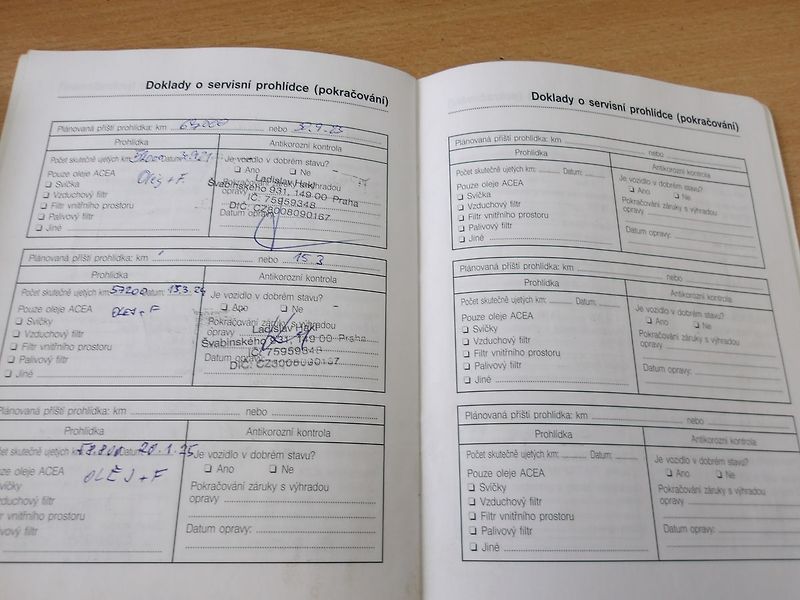 Doklady o servisní prohlídce (pokračování)
Plánovaná příští prohlídka: km nebo
Prohlídka Antikorozní kontrola
Počet skutečně ujetých km: Datum:
Je vozidlo v dobrém stavu?
Pouze oleje ACEA Olej + F
Ano Ne
Svíčka
Vzduchový filtr
Filtr vnitřního prostoru
Palivový filtr
Jiné
Ladislav Hakl
Švabinského 931, 149 00 Praha
IČ: 75959348
DIČ: CZ3008090167
Datum opravy:
Plánovaná příští prohlídka: km nebo 15.3
Prohlídka Antikorozní kontrola
Počet skutečně ujetých km: 57200 Datum: 15.3.24
Je vozidlo v dobrém stavu?
Pouze oleje ACEA OLEJ + F
Ano Ne
Svíčky
Vzduchový filtr
Filtr vnitřního prostoru
Palivový filtr
Jiné
Pokračování záruky s výhradou
opravy
Ladislav Hakl
Švabinského 931, 149 00 Praha
IČ: 75959348
Datum opravy:
DIČ: CZ3008090167
Plánovaná příští prohlídka: km nebo
Prohlídka Antikorozní kontrola
Počet skutečně ujetých km: 58.800 Datum: 28.1.25
Je vozidlo v dobrém stavu?
Pouze oleje ACEA OLEJ + F
Ano Ne
Svíčky
Vzduchový filtr
Filtr vnitřního prostoru
Palivový filtr
Pokračování záruky s výhradou
opravy
Datum opravy:
Doklady o servisní prohlídce (pokračování)
Plánovaná příští prohlídka: km nebo
Prohlídka Antikorozní kontrola
Počet skutečně ujetých km: Datum:
Je vozidlo v dobrém stavu?
Pouze oleje ACEA
Ano Ne
Svíčka
Vzduchový filtr
Filtr vnitřního prostoru
Palivový filtr
Jiné
Pokračování záruky s výhradou
opravy
Datum opravy:
Plánovaná příští prohlídka: km nebo
Prohlídka Antikorozní kontrola
Počet skutečně ujetých km: Datum:
Je vozidlo v dobrém stavu?
Pouze oleje ACEA
Ano Ne
Svíčky
Vzduchový filtr
Filtr vnitřního prostoru
Palivový filtr
Jiné
Pokračování záruky s výhradou
opravy
Datum opravy:
Plánovaná příští prohlídka: km nebo
Prohlídka Antikorozní kontrola
Počet skutečně ujetých km: Datum:
Je vozidlo v dobrém stavu?
Pouze oleje ACEA
Ano Ne
Svíčky
Vzduchový filtr
Filtr vnitřního prostoru
Palivový filtr
Jiné
Pokračování záruky s výhradou
opravy
Datum opravy: